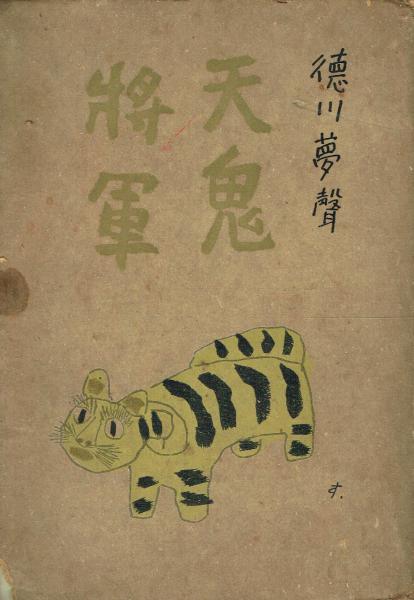 德川夢聲
天鬼
將軍
す.